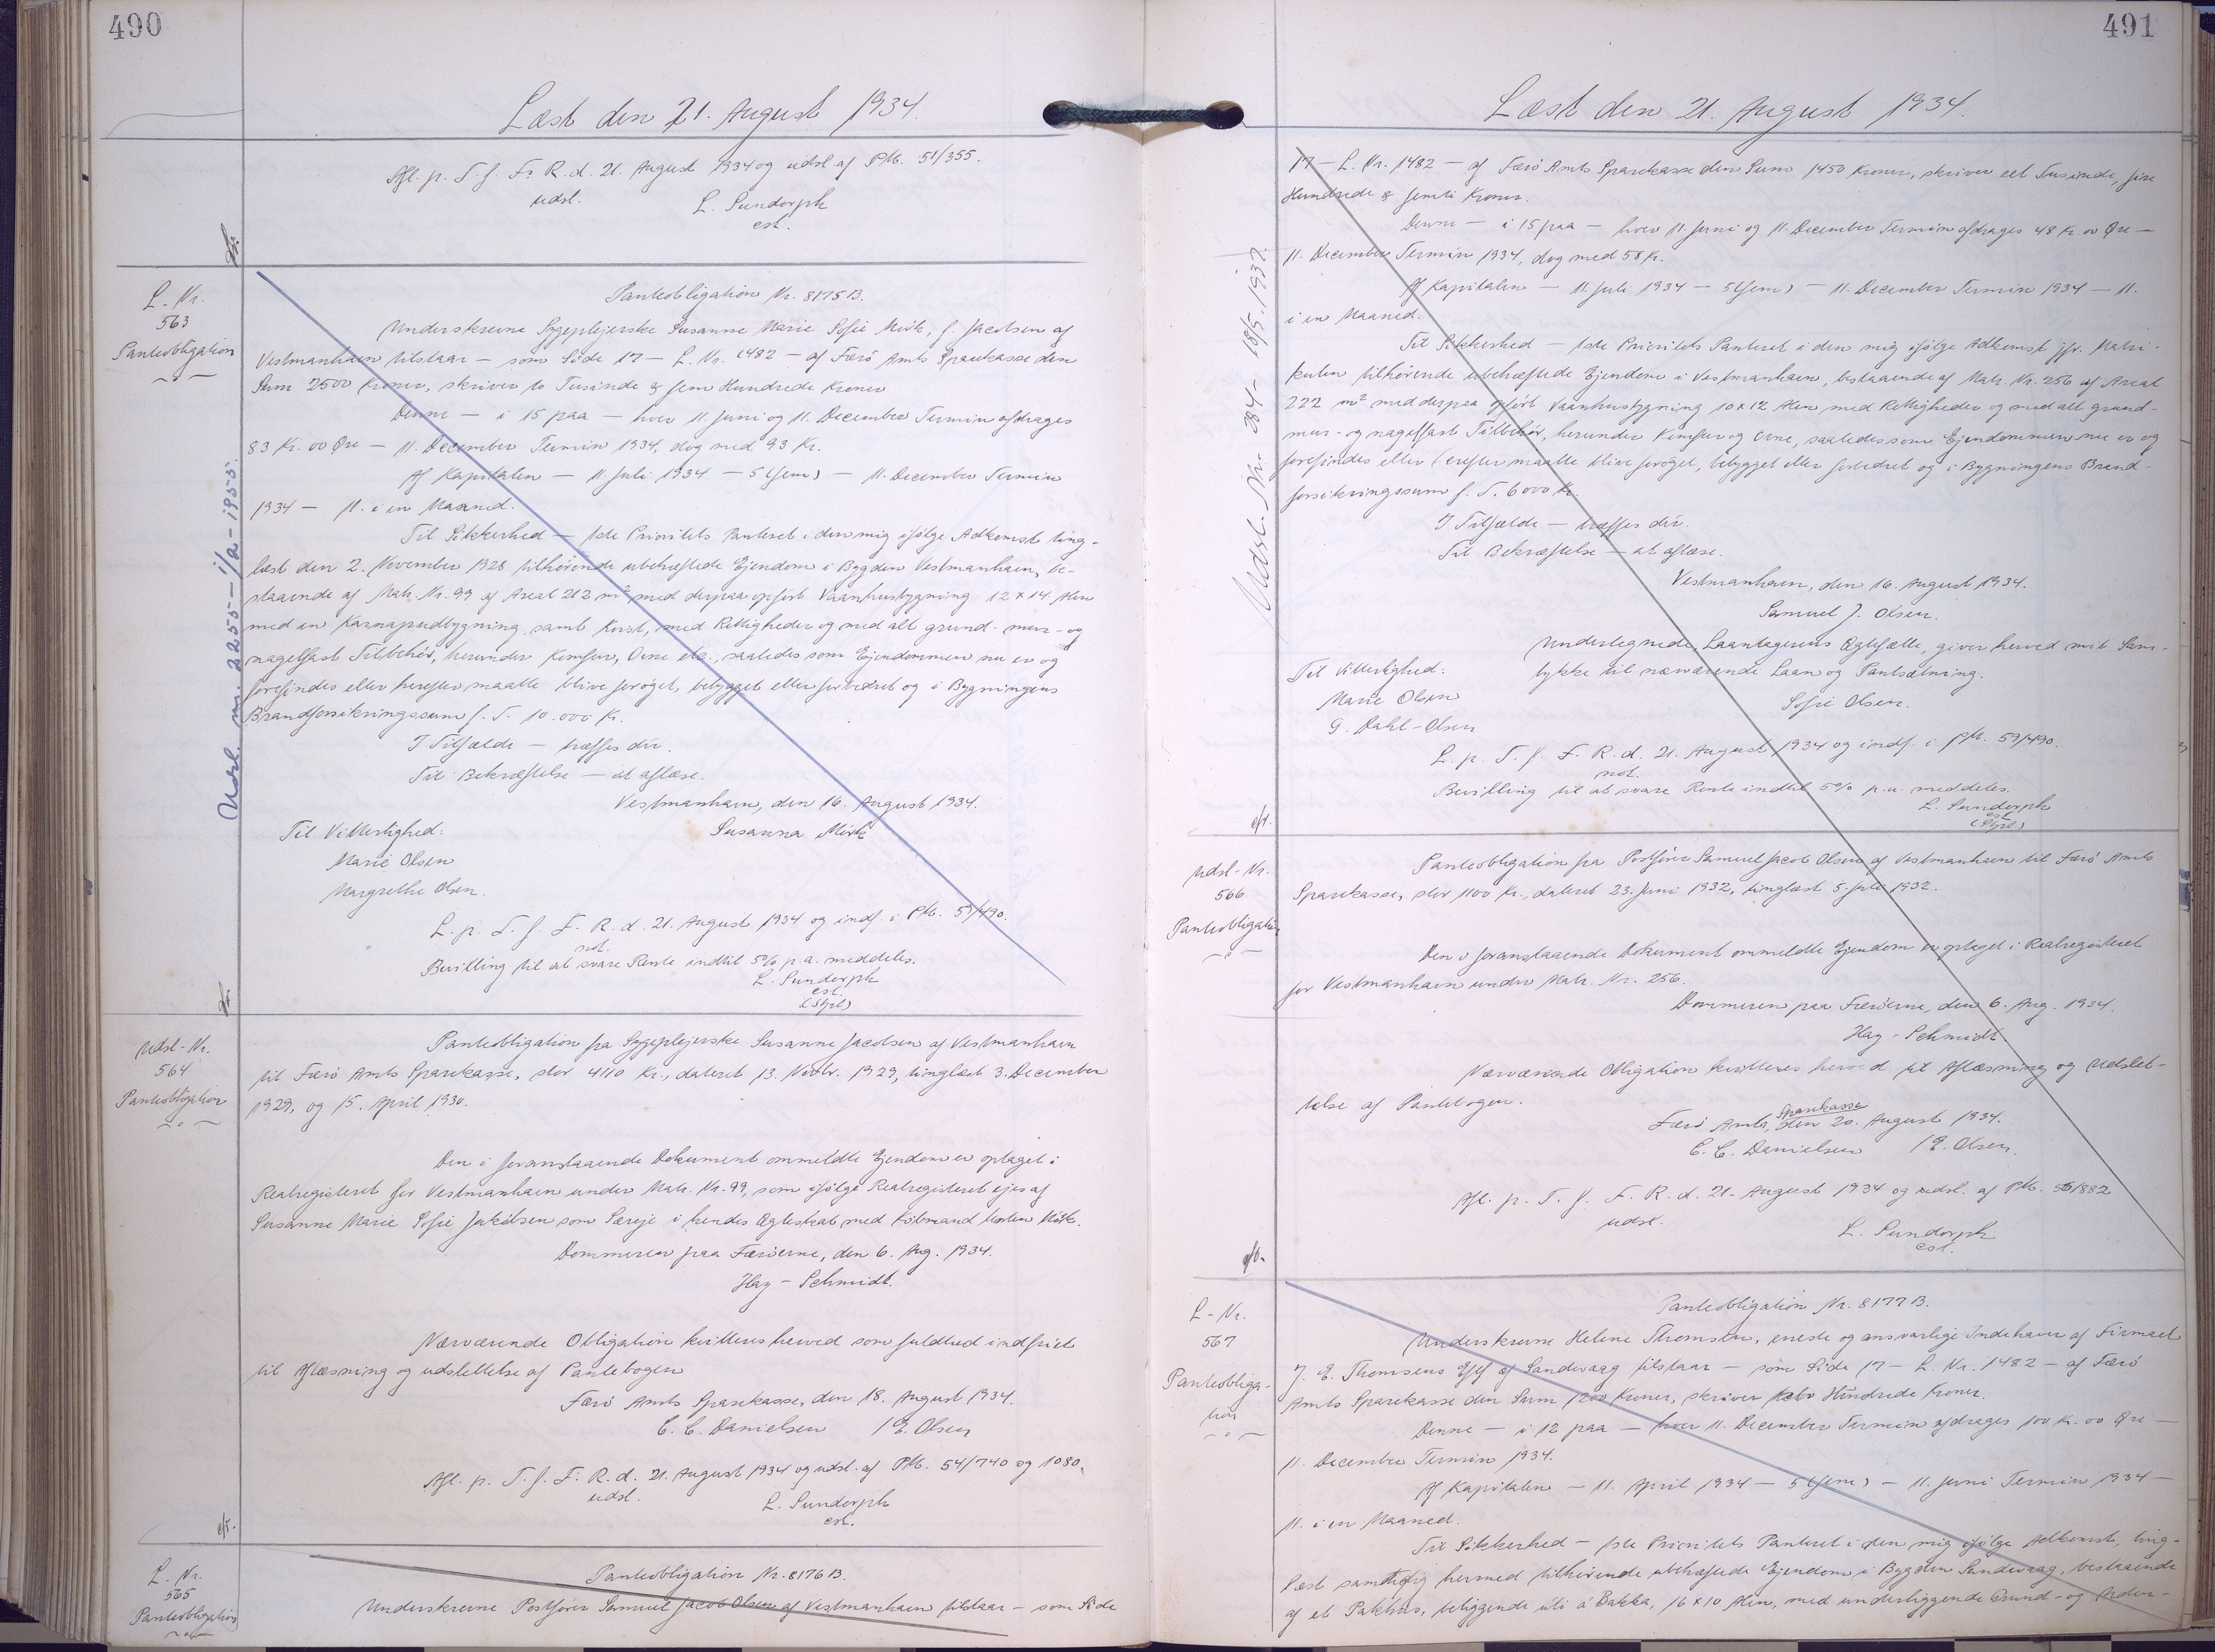 490
Læst den 21. August 1934.
Afl. p. T. f. F. R. d. 21. August 1934 og udsl. af PM. 51/355.
udsl.
L. Sundorph
est.
L. Nr.
563
Panteobligation
Udsl. nr. 2255 - 1/2 - 1955.
Panteobligation Nr. 8175 B.
Underskrevne Sygeplejerske Susanne Marie Sofie Mörk, f. Jacobsen af
Vestmanhavn tilstaar — som Side 17 — L. Nr. 1482 — af Færö Amts Sparekasse den
Sum 2500 Kroner, skriver to Tusinde & fem Hundrede Kroner
Denne — i 15 paa — hver 11. Juni og 11. December Termin afdrages
83 Kr. 00 Øre — 11. December Termin 1934, dog med 93 Kr.
Af Kapitalen — 11. Juli 1934 — 5 (fem) — 11. December Termin
1934 — 11. i en Maaned.
Til Sikkerhed — 1ste Prioritets Panteret i den mig ifölge Adkomst ting-
læst den 2. November 1928 tilhörende ubehæftede Ejendom i Bygden Vestmanhavn, be-
staaende af Matr. Nr. 99 af Areal 212 m² med derpaa opfört Vaanhusbygning 12 x 14 Alen
med en Karnapudbygning samt Kvist, med Rettigheder og med alt grund- mur- og
nagelfast Tilbehör, herunder Komfur, Ovne etc., saaledes som Ejendommen nu er og
forefindes eller herefter maatte blive forøget, bebygget eller forbedret og i Bygningens
Brandforsikringssum f. T. 10.000 Kr.
I Tilfælde — træffes dér.
Til Bekræftelse — at aflæse.
Vestmanhavn, den 16. August 1934.
Til Vitterlighed:
Susanna Mörk
Marie Olsen
Margrethe Olsen.
L. p. T. f. F. R. d. 21. August 1934 og indf. i PM. 59/490.
not.
Bevilling til at svare Rente indtil 5% p.a. meddeles.
L. Sundorph
est.
(Stpl)
Udsl-Nr.
564
Panteobligation
Panteobligation fra Sygeplejerske Susanne Jacobsen af Vestmanhavn
til Færö Amts Sparekasse, stor 4110 Kr., dateret 13. Novbr. 1929, tinglæst 3. December
1929, og 15. April 1930.
Den i foranstaaende Dokument ommeldte Ejendom er optaget i
Realregisteret for Vestmanhavn under Matr. Nr. 99, som ifölge Realregisteret ejes af
Susanne Marie Sofie Jakobsen som Særeje i hendes Ægteskab med Købmand Morten Mörk.
Dommeren paa Færöerne, den 6. Aug. 1934.
Hay-Schmidt.
Nærværende Obligation kvitteres herved som fuldtud indfriet
til Aflæsning og udslettelse af Pantebogen
Færö Amts Sparekasse, den 18. August 1934.
C. C. Danielsen / E. Olsen
Afl. p. T. f. F. R. d. 21. August 1934 og udsl. af PM. 54/740 og 1080.
udsl.
L. Sundorph
est.
L. Nr.
565
Panteobligation
Panteobligation Nr. 8176 B.
Underskrevne Postförer Samuel Jacob Olsen af Vestmanhavn tilstaar — som Side
491
Læst den 21. August 1934.
17 — L. Nr. 1482 — af Færö Amts Sparekasse den Sum 1450 Kroner, skriver eet Tusinde, fire
Hundrede & femti Kroner.
Denne — i 15 paa — hver 11. Juni og 11. December Termin afdrages 48 Kr. 00 Øre —
11. December Termin 1934, dog med 58 Kr.
Af Kapitalen — 11. Juli 1934 — 5 (fem) — 11. December Termin 1934 — 11.
i en Maaned.
Til Sikkerhed — 1ste Prioritets Panteret i den mig ifölge Adkomst jfr. Matri-
kulen tilhörende ubehæftede Ejendom i Vestmanhavn, bestaaende af Matr. Nr. 256 af Areal
222 m² med derpaa opfört Vaanhusbygning 10 x 12 Alen med Rettigheder og med alt grund-
mur- og nagelfast Tilbehör, herunder Komfur og Ovne, saaledes som Ejendommen nu er og
forefindes eller herefter maatte blive forøget, bebygget eller forbedret og i Bygningens Brand-
forsikringssum f. T. 6000 Kr.
I Tilfælde — træffes dér.
Til Bekræftelse — at aflæse.
Vestmanhavn, den 16. August 1934.
Samuel J. Olsen.
Undertegnede, Laantagerens Ægtefælle, giver herved mit Sam-
Til Vitterlighed:
tykke til nærværende Laan og Pantsætning.
Marie Olsen
Sofie Olsen.
G. Dahl-Olsen
L. p. T. f. F. R. d. 21. August 1934 og indf. i PM. 59/490.
not.
Bevilling til at svare Rente indtil 5% p.a. meddeles.
L. Sundorph
est
(Stpl)
Udsl-Nr.
566
Panteobligation
Panteobligation fra Postförer Samuel Jacob Olsen af Vestmanhavn til Færö Amts
Sparekasse, stor 1100 Kr., dateret 23. Juni 1932, tinglæst 5. Juli 1932.
Den i foranstaaende Dokument ommeldte Ejendom er optaget i Realregisteret
for Vestmanhavn under Matr. Nr. 256.
Dommeren paa Færöerne, den 6. Aug. 1934.
Hay-Schmidt.
Nærværende Obligation kvitteres herved til Aflæsning og Udslet-
telse af Pantebogen.
Færö Amts Sparekasse, den 20. August 1934.
C. C. Danielsen / E. Olsen.
Afl. p. T. f. F. R. d. 21. August 1934 og udsl. af PM. 56/882
udsl.
L. Sundorph
est.
L-Nr.
567
Panteobliga-
tion
Panteobligation Nr. 8177 B.
Underskrevne Helene Thomsen, eneste og ansvarlige Indehaver af Firmaet
J. E. Thomsens Eftf. af Sandevaag tilstaar — som Side 17 — L. Nr. 1482 — af Færö
Amts Sparekasse den Sum 1200 Kroner, skriver tolv Hundrede Kroner.
Denne — i 12 paa — hver 11. December Termin afdrages 100 Kr. 00 Øre —
11. December Termin 1934.
Af Kapitalen — 11. April 1934 — 5 (fem) — 11. Juni Termin 1934 —
11. i en Maaned.
Til Sikkerhed — 1ste Prioritets Panteret i den mig ifölge Adkomst, ting-
læst samtidig hermed tilhörende ubehæftede Ejendom i Bygden Sandevaag, bestaaende
af et Pakhus, beliggende úti á Bakka, 16 x 10 Alen, med underliggende Grund- og